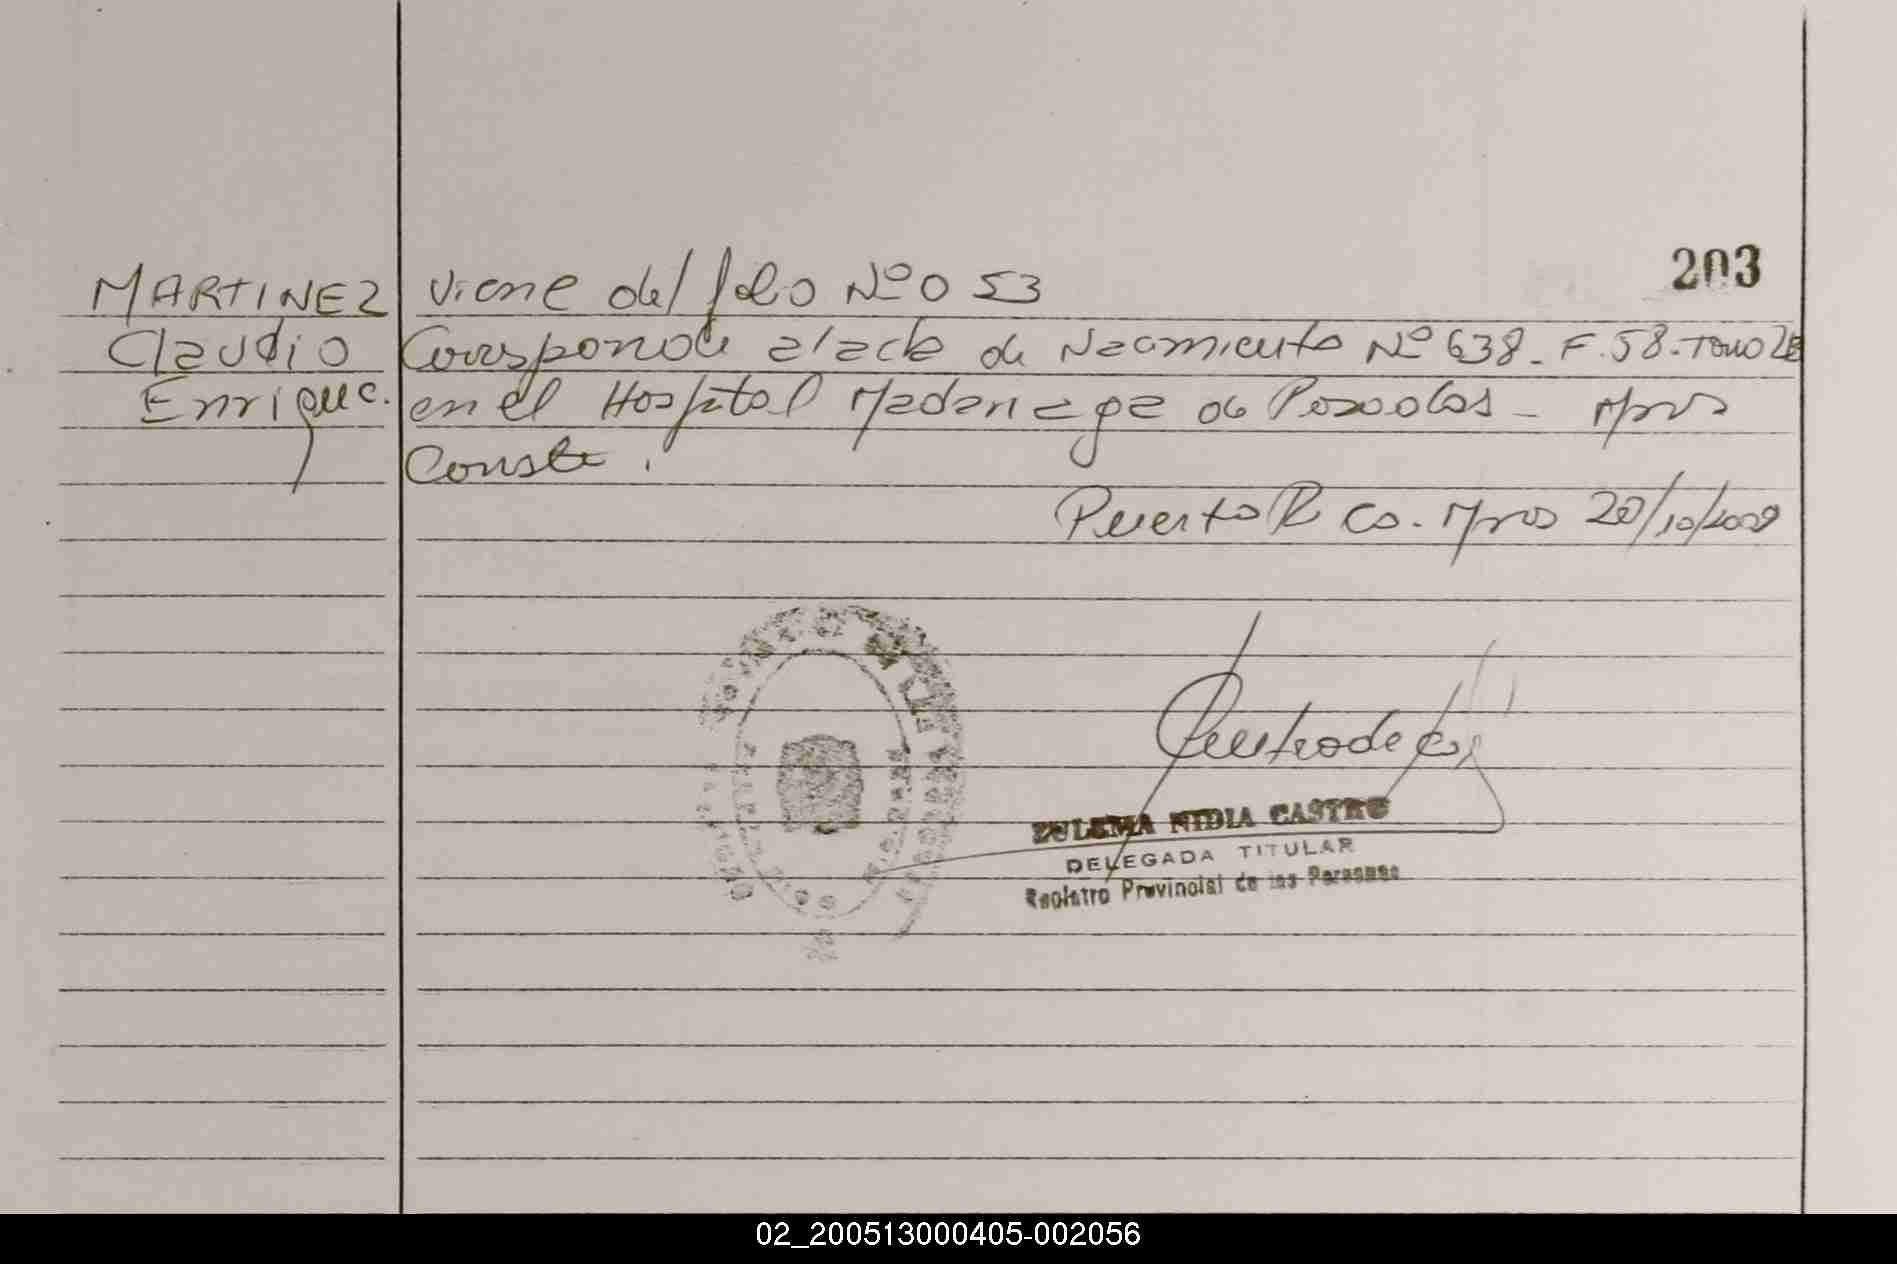 203
MARTINEZ viene del folio Nº 0 53
Claudio Corresponde al acta de Nacimiento Nº 638 - F. 58 - Tomo
Enrique. en el Hospital Madariaga de Posadas - Mnes
Conste.
Puerto Rico. Mnes 20/10/2009
ZULEMA NIDIA CASTRO
DELEGADA TITULAR
Registro Provincial de las Personas
02_200513000405-002056